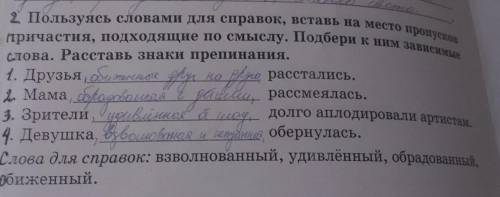 2. Пользуясь словами для справок, вставь на место пропусков
причастия, подходящие по смыслу. Подбери к ним зависимые
слова. Расставь знаки препинания.
1. Друзья, обиженные друг на друга, расстались.
2. Мама, обрадованная с детьми, рассмеялась.
3. Зрители, удивлённые, долго аплодировали артистам.
4. Девушка, взволнованная и, обернулась.
Слова для справок: взволнованный, удивлённый, обрадованный,
обиженный.